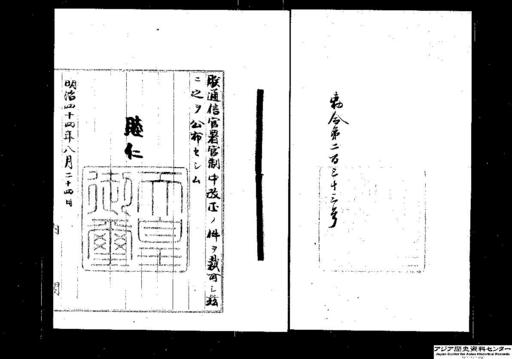 勅令第二百三十三号
朕通信官署官制中改正ノ件ヲ裁可シ茲
ニ之ヲ公布セシム
睦仁
天皇御璽
明治四十四年八月二十四日
アジア歴史資料センター
Japan Center for Asian Historical Records